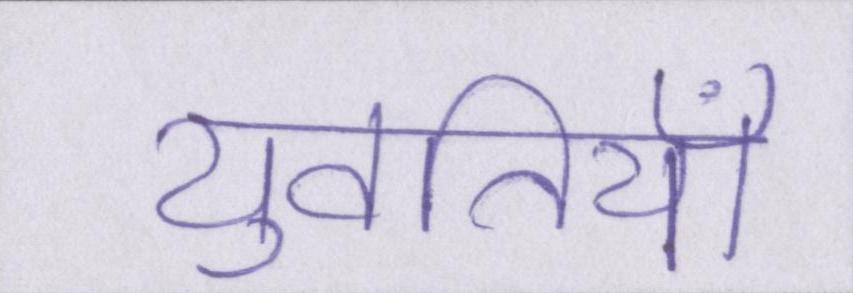 युवतियाँ